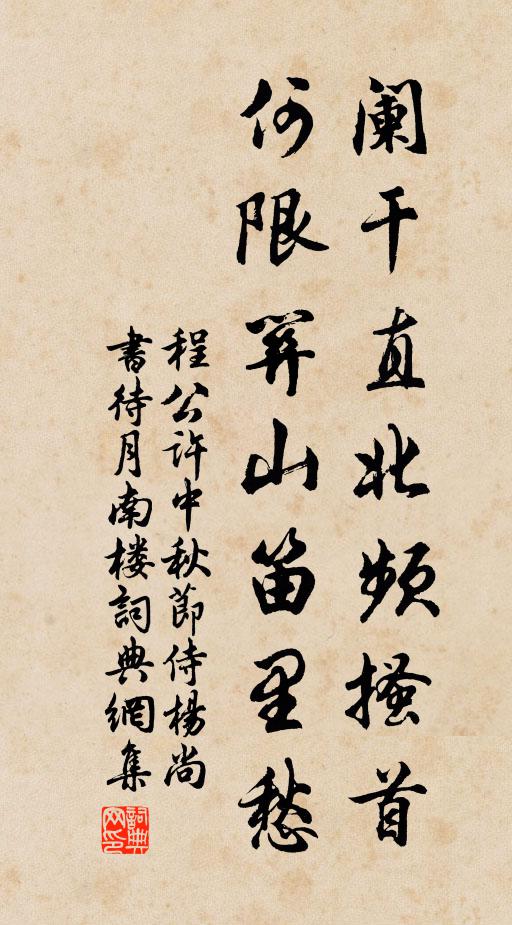 阑干直北频搔首
何限关山笛里愁
程公许中秋節侍楊尚
書待月南楼詞典網集
詞典网印